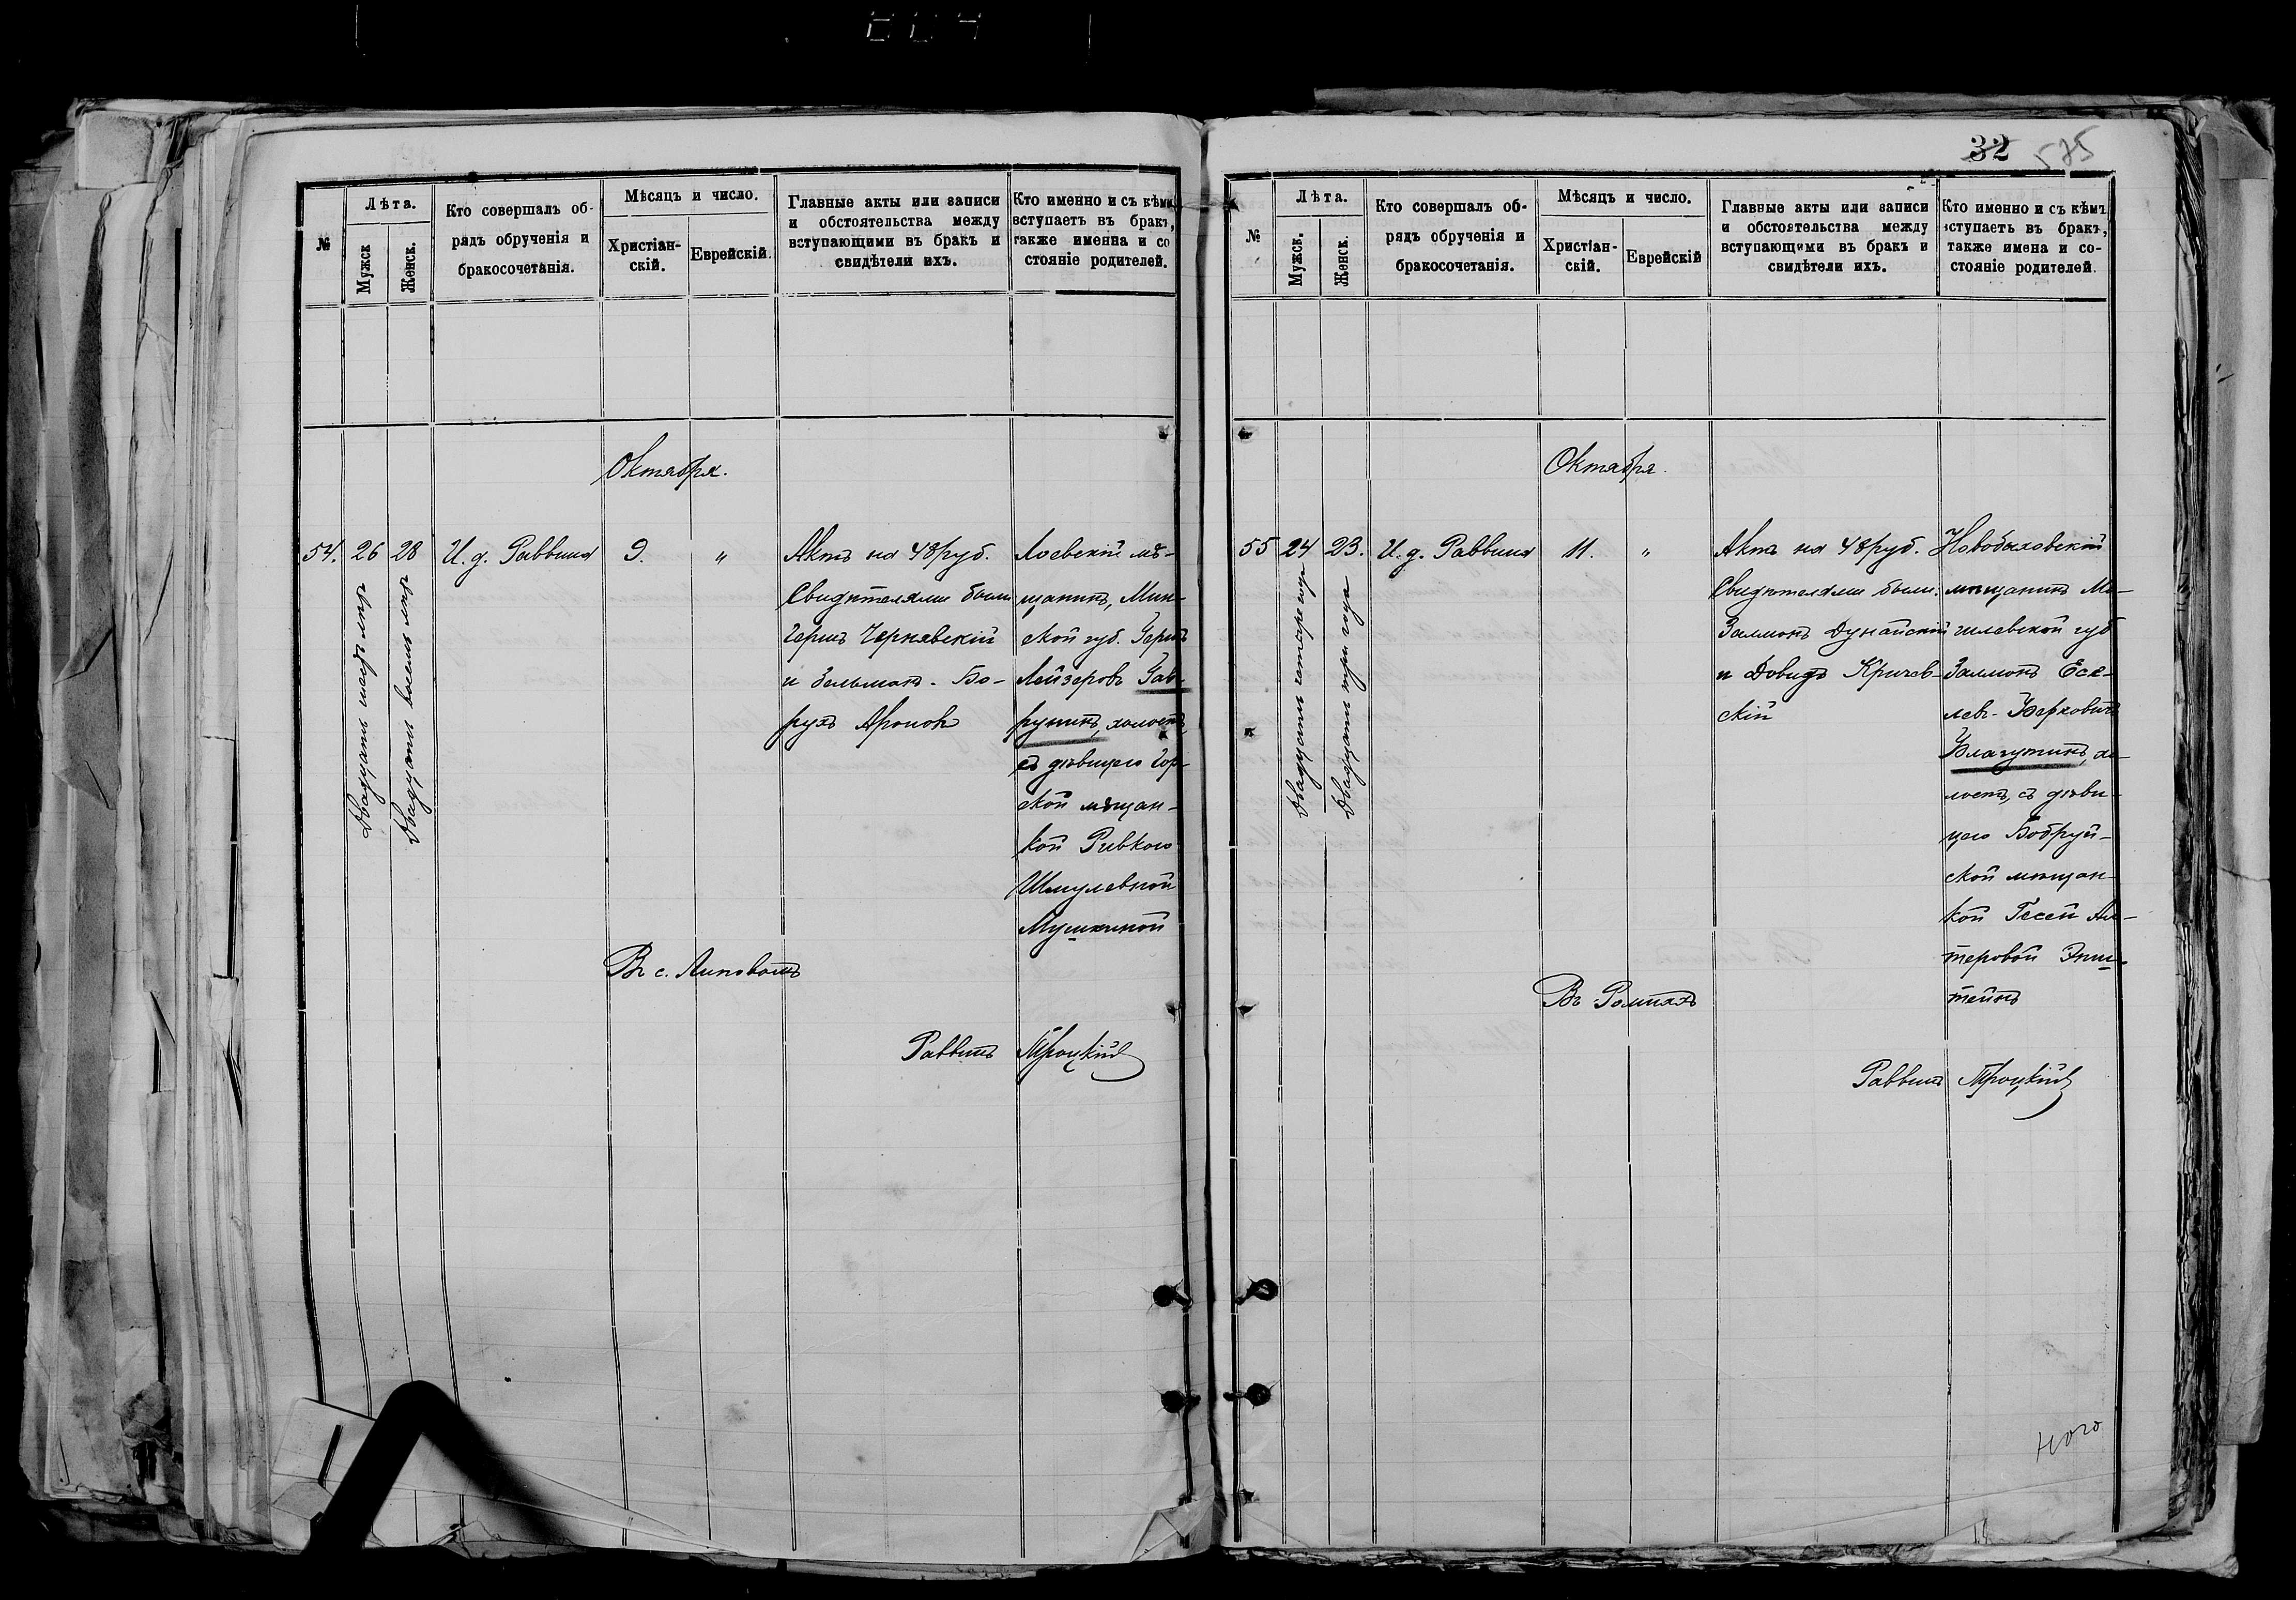 №
Лѣта.
Мужск
Женск.
Кто совершалъ об-
рядъ обрученія и
бракосочетанія.
Мѣсяцъ и число.
Христіан-
скій.
Еврейскій.
Главные акты или записи
и обстоятельства между
вступающими въ бракъ и
свидѣтели ихъ.
Кто именно и съ кѣмъ
вступаетъ въ бракъ,
также имянна и со
стояніе родителей.
Октября.
54.
26
Двадцать шесть лѣтъ
28
Двадцать восемь лѣтъ
И. д. Раввина
9.
"
Актъ на 48 руб.
Свидѣтелями были
Герша Чернявскій
и Зельманъ - Бо-
рухъ Ароновъ
Лоевскій мѣ-
щанинъ, Мин-
ской губ. Герш
Лейзеровъ Гав-
рутинъ, холостъ
съ дѣвицею Гор-
ской мѣщан-
кой Ривкою
Шмулевной
Мушкиной
Въ с. Липовомъ
Раввинъ Троцкій
32
575
№
Лѣта.
Мужск.
Женск.
Кто совершалъ об-
рядъ обрученія и
бракосочетанія.
Мѣсяцъ и число.
Христіан-
скій.
Еврейскій
Главные акты или записи
и обстоятельства между
вступающими въ бракъ и
свидѣтели ихъ.
Кто именно и съ кѣмъ
вступаетъ въ бракъ,
также имена и со-
стояніе родителей.
Октября.
55
24
Двадцать четыре года
23.
Двадцать три года
И. д. Раввина
11.
"
Актъ на 48 руб.
Свидѣтелями были:
Залманъ Дунайскій
и Довидъ Кричев-
скій
Новобыховскій
мѣщанинъ Мо-
гилевской губ
Залманъ Есе-
левъ - Берковичъ
Благутинъ, хо-
лостъ, съ дѣви-
цею Бобруй-
ской мѣщан-
кой Гесей Ал-
теровой Эпш-
тейнъ
Въ Ромнахъ
Раввинъ Троцкій